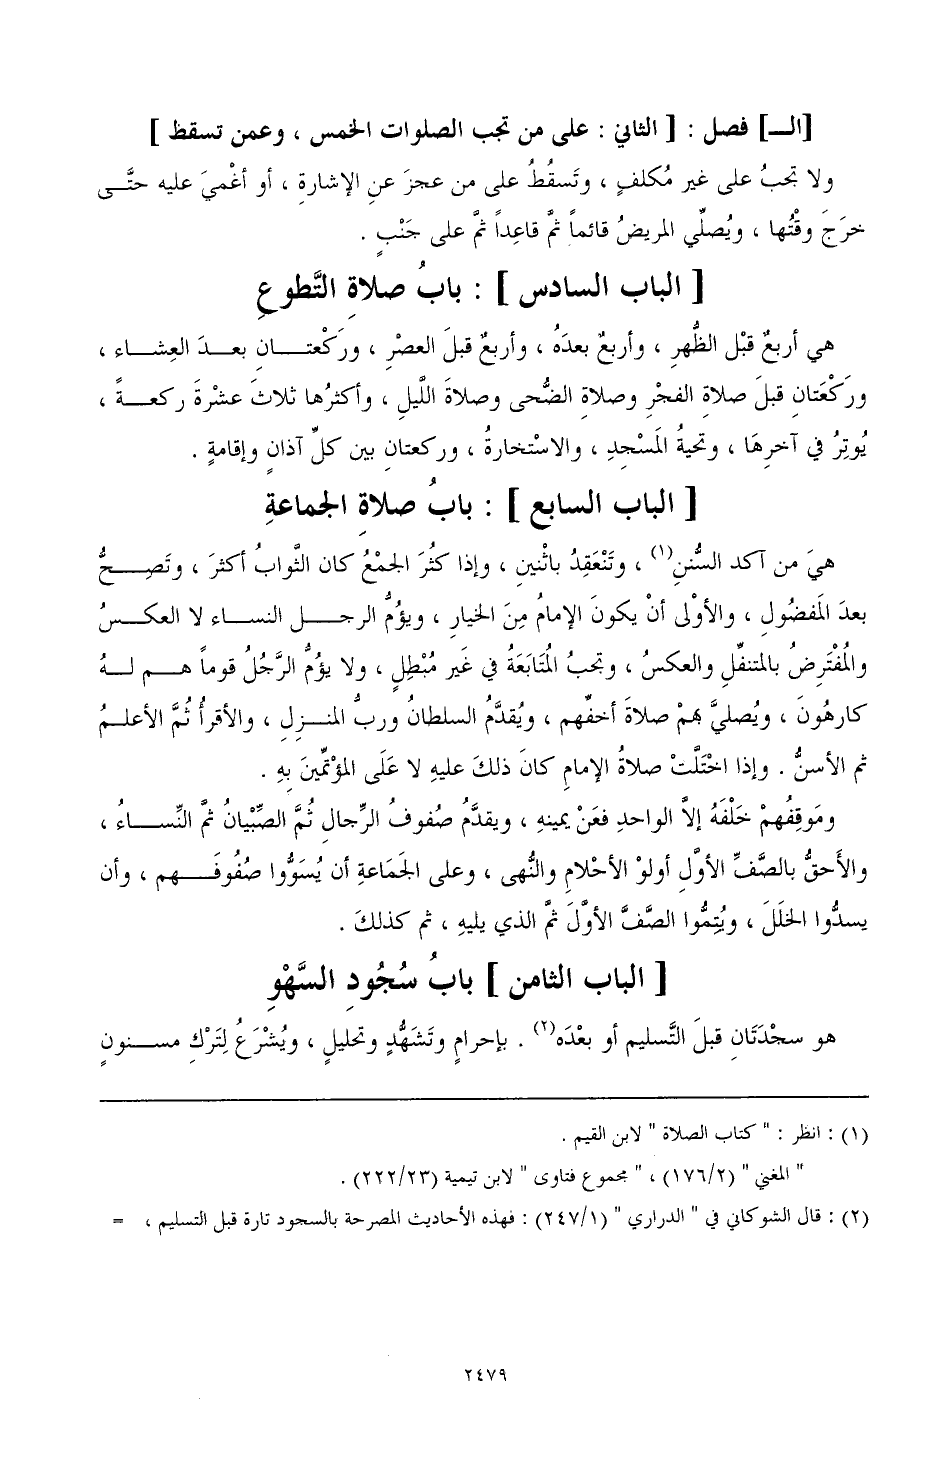 [الـ] فصل : [ الثاني : على من تجب الصلوات الخمس ، وعمن تسقط ]
ولا تجبُ على غير مُكلفٍ ، وتَسقُطُ على من عجزَ عنِ الإشارةِ ، أو أغْميَ عليه حتَّى
خرَجَ وقْتُها ، ويُصلِّي المريضُ قائماً ثمَّ قاعِداً ثمَّ على جَنْبٍ .
[ الباب السادس ] : بابُ صلاةِ التَّطوعِ
هي أربعٌ قبْل الظُّهرِ ، وأربعٌ بعدَهُ ، وأربعٌ قبلَ العصْرِ ، وركْعتانِ بعدَ العِشاء ،
وركْعَتانِ قبلَ صلاةِ الفجْرِ وصلاةِ الضُّحى وصلاةَ اللَّيلِ ، وأكثرُها ثلاثَ عشْرةَ ركعةً ،
يُوتِرُ في آخرِهَا ، وتحيةُ المَسْجدِ ، والاسْتخارةُ ، وركعتانِ بين كلِّ آذانٍ وإقامةٍ .
[ الباب السابع ] : بابُ صلاةِ الجماعةِ
هيَ من آكد السُّننِ(١) ، وتَنْعَقِدُ باثْنينِ ، وإذا كثُرَ الجمْعُ كان الثَّوابُ أكثرَ ، وتَصِحُّ
بعدَ المَفضُولِ ، والأوْلى أنْ يكونَ الإمامُ مِنَ الخيارِ ، ويؤُمُّ الرجلُ النساء لا العكسُ
والمُفْتَرِضُ بالمتنفِّلِ والعكسُ ، وتجبُ المُتابَعَةُ في غَير مُبْطِلٍ ، ولا يؤمُّ الرَّجُلُ قوماً هم لهُ
كارهُونَ ، ويُصليَّ بهمْ صلاةَ أخفِّهم ، ويُقدَّمُ السلطانُ وربُّ المنزلِ ، والأقرأُ ثُمَّ الأعلمُ
ثم الأسنُّ . وإذا اخْتَلَّتْ صلاةُ الإمامِ كانَ ذلكَ عليهِ لا عَلَى المؤْتمِّينَ بهِ .
ومَوقِفُهمْ خلْفَهُ إلاَّ الواحدِ فعَنْ يمينهِ ، ويقدَّمُ صُفوفُ الرِّجالِ ثُمَّ الصِّبْيانُ ثمَّ النِّساءُ ،
والأَحقُّ بالصَّفِّ الأوَّلِ أولوْ الأحْلامِ والنُّهى ، وعلى الجَماعةِ أن يُسَوُّوا صُفُوفَهم ، وأن
يسدُّوا الخلَلَ ، ويُتِمُّوا الصَّفَّ الأوَّلَ ثمَّ الذي يليهِ ، ثم كذلكَ .
[ الباب الثامن ] بابُ سُجُودِ السَّهْوِ
هو سجْدَتَانِ قبلَ التَّسليمِ أو بعْدَه(٢) . بإحرامٍ وتَشَهُّدٍ وتحليلٍ ، ويُشْرَعُ لتَرْكِ مسنونٍ
(١) : انظر : " كتاب الصلاة " لابن القيم .
" المغني " (١٧٦/٢) ، " مجموع فتاوى " لابن تيمية (٢٢٢/٢٣) .
(٢) : قال الشوكاني في " الدراري " (٢٤٧/١) : فهذه الأحاديث المصرحة بالسجود تارة قبل التسليم ، =
٢٤٧٩